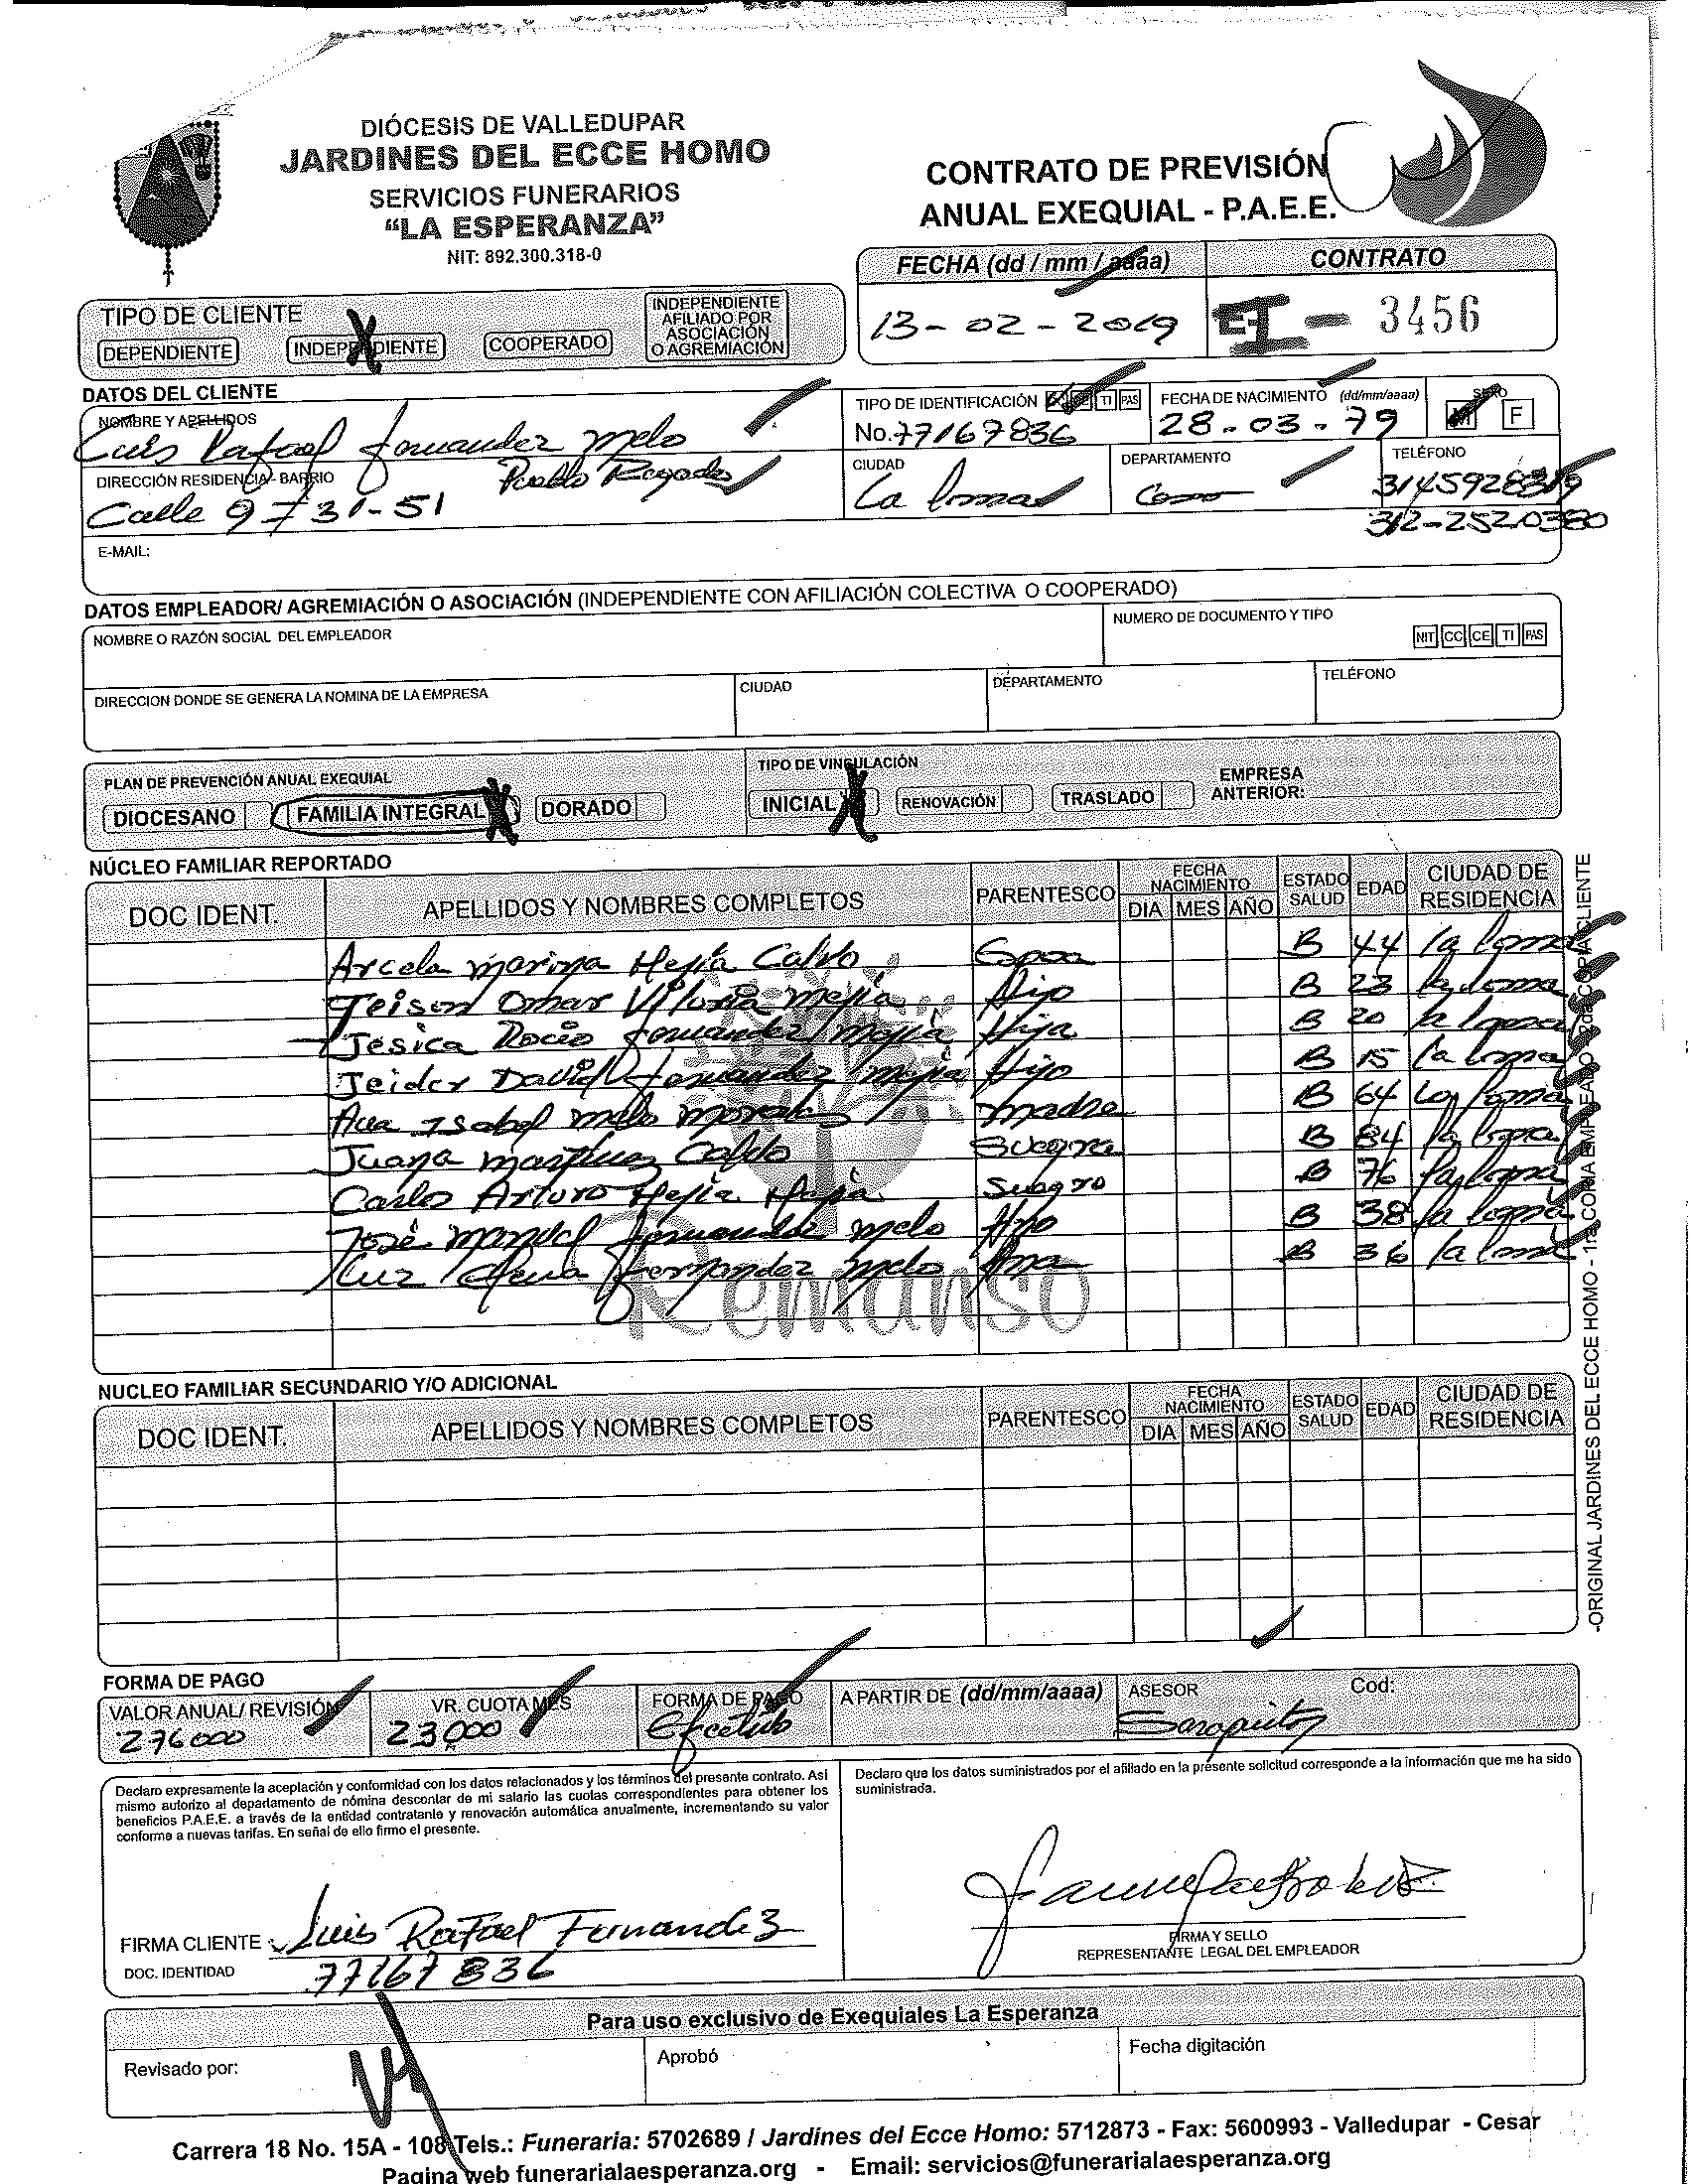 DIÓCESIS DE VALLEDUPAR
JARDINES DEL ECCE HOMO
SERVICIOS FUNERARIOS
“LA ESPERANZA”
NIT: 892.300.318-0
CONTRATO DE PREVISIÓN
ANUAL EXEQUIAL - P.A.E.E.
FECHA (dd / mm / aaaa) CONTRATO
13-02-2019 EI - 3456
TIPO DE CLIENTE
DEPENDIENTE INDEPENDIENTE X COOPERADO INDEPENDIENTE AFILIADO POR ASOCIACIÓN O AGREMIACIÓN
DATOS DEL CLIENTE
NOMBRE Y APELLIDOS TIPO DE IDENTIFICACIÓN CC CE TI PAS FECHA DE NACIMIENTO (dd/mm/aaaa) SEXO
Luis Rafael Fernandez Melo No. 77167836 28-03-79 M F
DIRECCIÓN RESIDENCIA - BARRIO Pueblo Regado CIUDAD DEPARTAMENTO TELÉFONO
Calle 9 # 31-51 La Loma Cesar 3145928319
312-2520380
E-MAIL:
DATOS EMPLEADOR/ AGREMIACIÓN O ASOCIACIÓN (INDEPENDIENTE CON AFILIACIÓN COLECTIVA O COOPERADO)
NOMBRE O RAZÓN SOCIAL DEL EMPLEADOR NUMERO DE DOCUMENTO Y TIPO
NIT CC CE TI PAS
DIRECCION DONDE SE GENERA LA NOMINA DE LA EMPRESA CIUDAD DEPARTAMENTO TELÉFONO
PLAN DE PREVENCIÓN ANUAL EXEQUIAL TIPO DE VINCULACIÓN
DIOCESANO FAMILIA INTEGRAL X DORADO INICIAL X RENOVACIÓN TRASLADO EMPRESA ANTERIOR:
NÚCLEO FAMILIAR REPORTADO
DOC IDENT. APELLIDOS Y NOMBRES COMPLETOS PARENTESCO FECHA NACIMIENTO DIA MES AÑO ESTADO SALUD EDAD CIUDAD DE RESIDENCIA
Arcela Marina Mejia Calvo Espoa B 44 la loma
Jeison Omar Viloria Mejia Hijo B 23 la loma
Jesica Rocio Fernandez Mejia Hija B 20 la loma
Jeider David Fernandez Mejia Hijo B 15 la loma
Ana Isabel Melo Morales Madre B 64 La loma
Juana Martinez Calvo Suegra B 84 la loma
Carlos Arturo Mejia Mejia Suegro B 76 la loma
José Manuel Fernandez Melo Hno B 38 la loma
Luz Elena Fernandez Melo Hna B 36 la loma
Remanso
NUCLEO FAMILIAR SECUNDARIO Y/O ADICIONAL
DOC IDENT. APELLIDOS Y NOMBRES COMPLETOS PARENTESCO FECHA NACIMIENTO DIA MES AÑO ESTADO SALUD EDAD CIUDAD DE RESIDENCIA
FORMA DE PAGO
VALOR ANUAL/ REVISIÓN VR. CUOTA MES FORMA DE PAGO A PARTIR DE (dd/mm/aaaa) ASESOR Cod:
276000 23,000 Efectivo
Declaro expresamente la aceptación y conformidad con los datos relacionados y los términos del presente contrato. Así
mismo autorizo al departamento de nómina descontar de mi salario las cuotas correspondientes para obtener los
beneficios P.A.E.E. a través de la entidad contratante y renovación automática anualmente, incrementando su valor
conforme a nuevas tarifas. En señal de ello firmo el presente.
Declaro que los datos suministrados por el afiliado en la presente solicitud corresponde a la información que me ha sido
suministrada.
FIRMA CLIENTE Luis Rafael Fernandez
DOC. IDENTIDAD 77167836
FIRMA Y SELLO
REPRESENTANTE LEGAL DEL EMPLEADOR
Para uso exclusivo de Exequiales La Esperanza
Revisado por: Aprobó Fecha digitación
Carrera 18 No. 15A - 108 Tels.: Funeraria: 5702689 / Jardines del Ecce Homo: 5712873 - Fax: 5600993 - Valledupar - Cesar
Pagina web funerarialaesperanza.org - Email: servicios@funerarialaesperanza.org